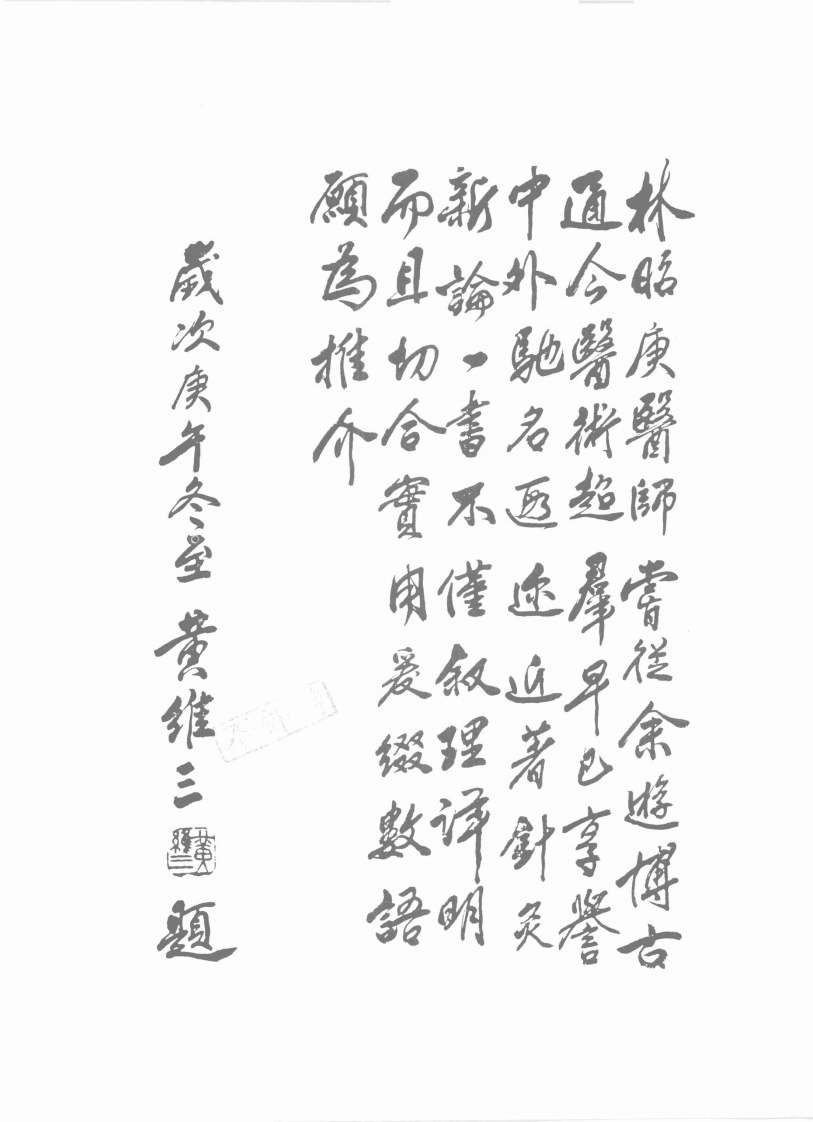 林昭庚醫師嘗從余遊博古
通今醫術超羣早已享譽
中外馳名遐迩近著針灸
新論一書不僅叙理詳明
而且切合實用爰綴數語
願為推介
歲次庚午冬至黄維三題
黃維三